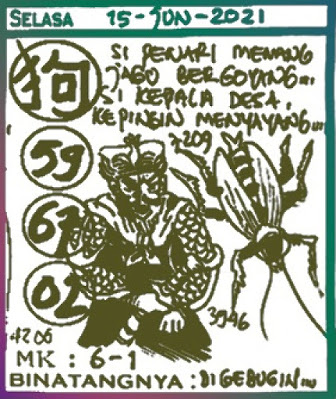 SELASA 15-JUN-2021
SI PENARI MEMANG
JAGO BERGOYANG...
SI KEPALA DESA,
KEPINGIN MENYAYANG...
狗
7209
59
67
02
3946
4206
MK : 6-1
BINATANGNYA : DI GEBUGIN...